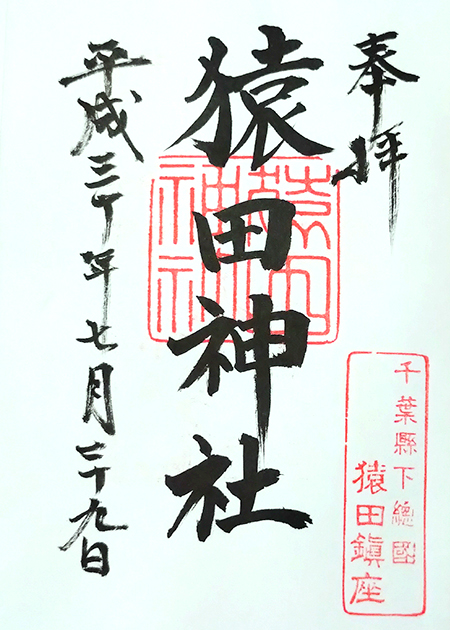 奉拝
猿田神社
平成三十年七月二十九日
猿田神社
千葉縣下總國
猿田鎮座